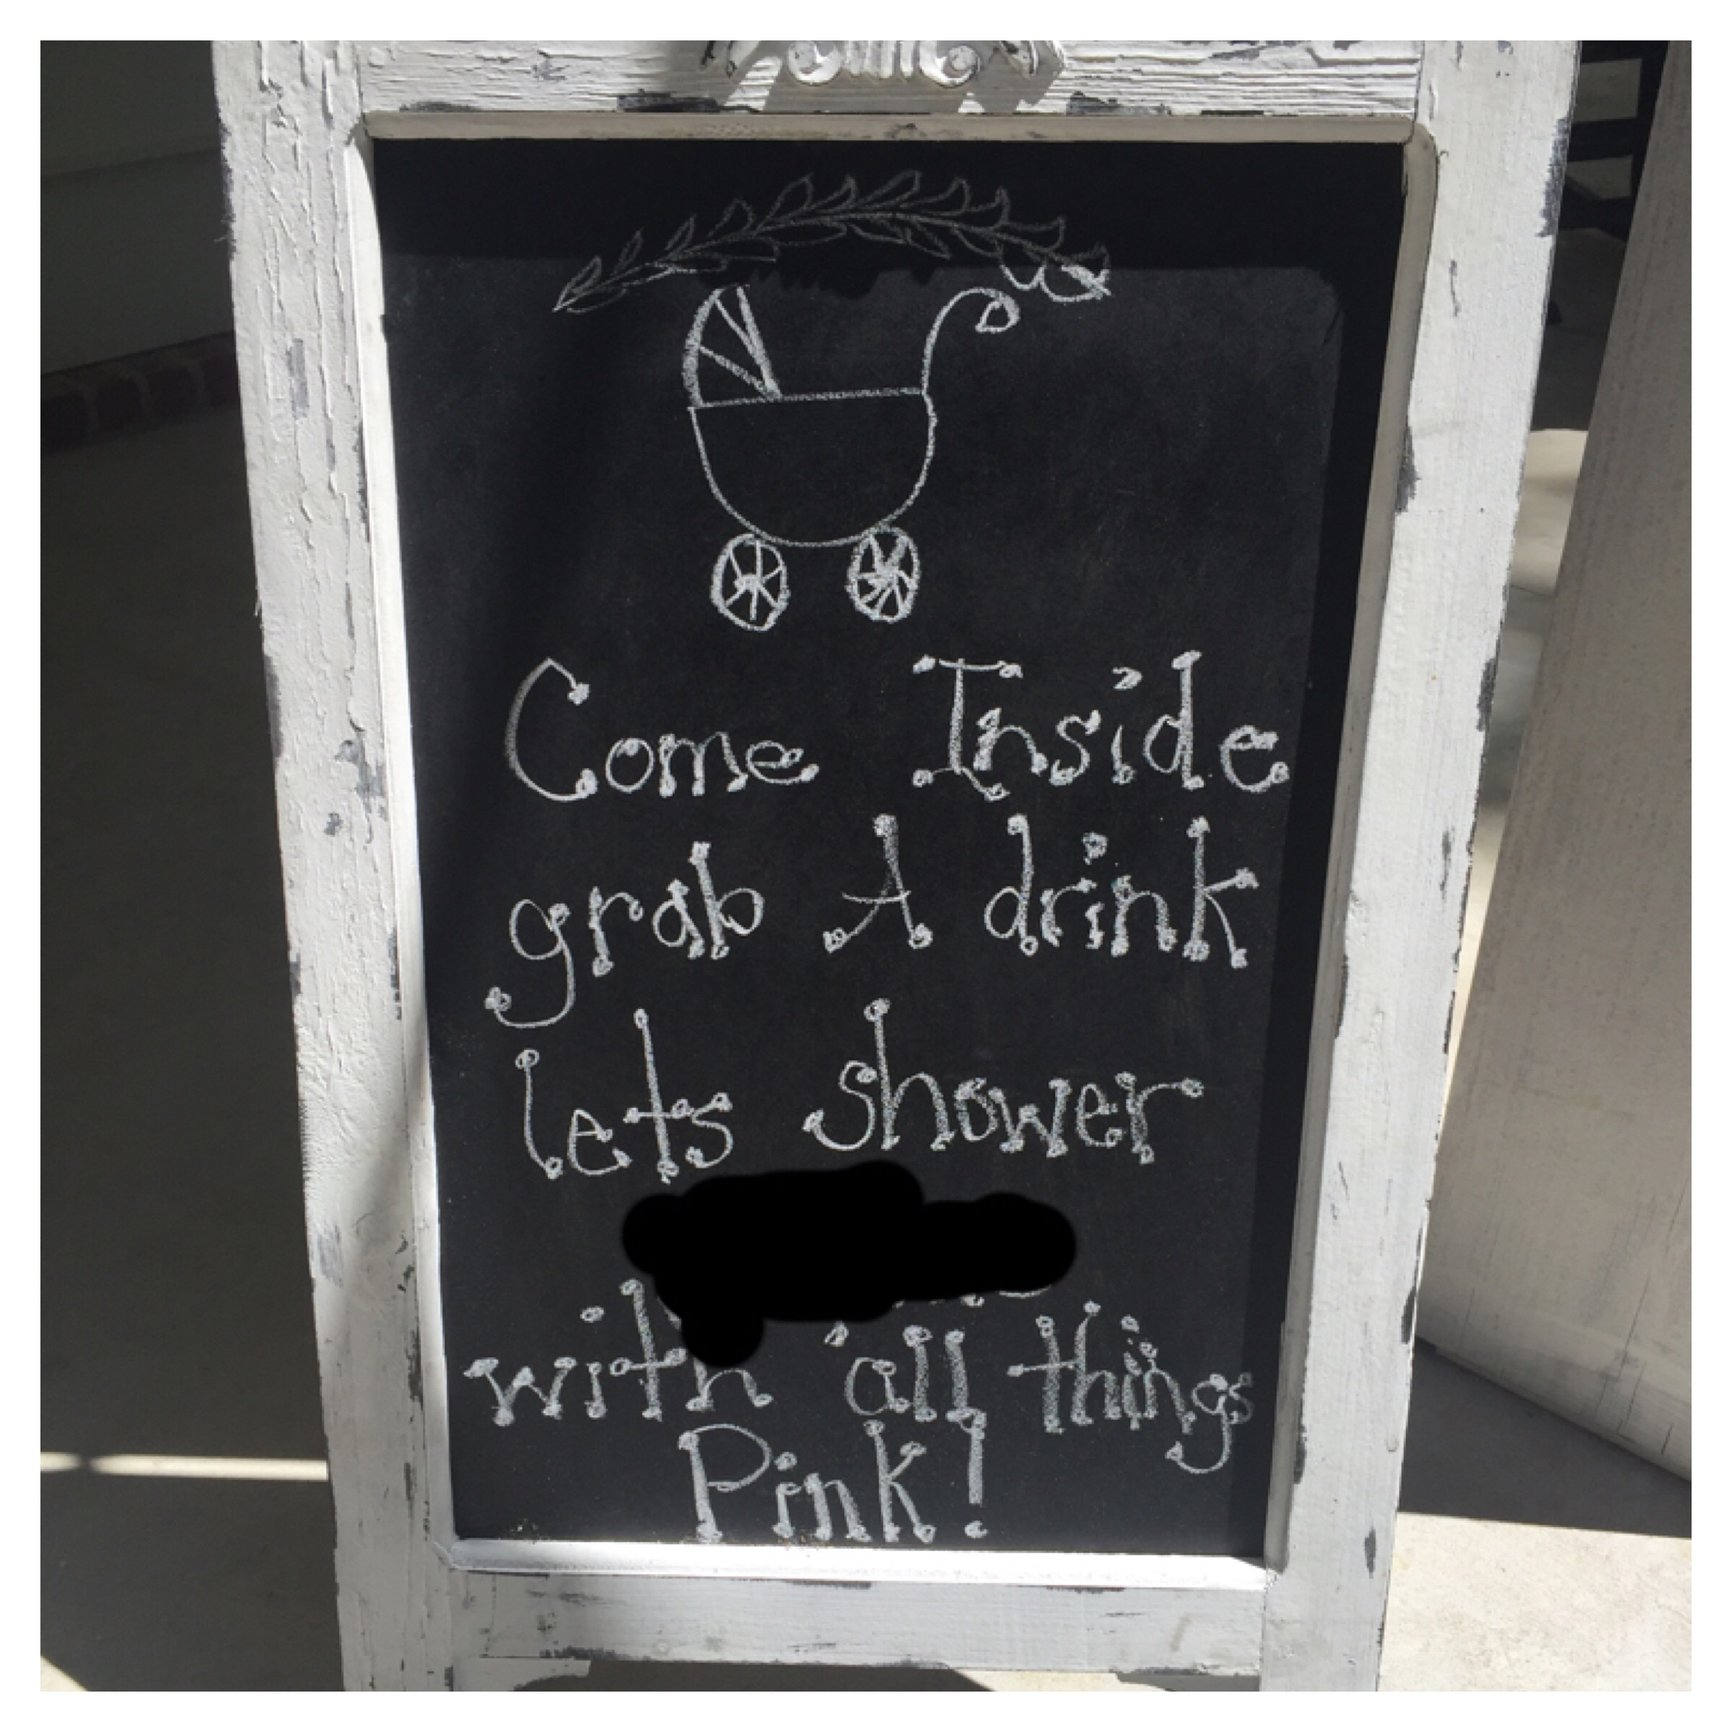 Come Inside
grab A drink
lets shower
with all things
Pink!